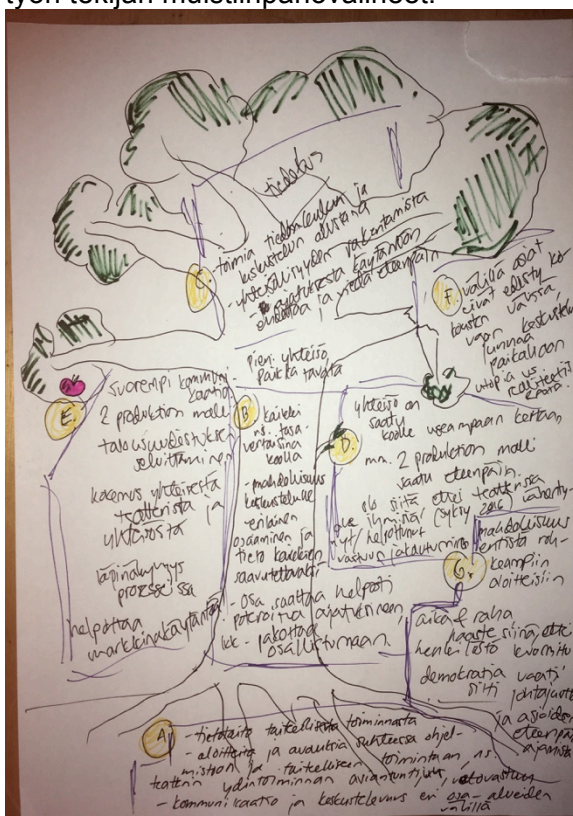 työn tekijän muistiinpanovälineet.
tiedotus
C.
- toimia tiedonkulun ja
keskustelun alustana
- yhteisöllisyyden rakentamista
ajatuksesta käytäntöön
ja viedä eteenpäin
F.
välillä asiat
eivät edisty ko-
kousten välissä,
vaan keskustelu
junnaa
paikallaan
utopia vs. realiteetit
Pieni yhteisö,
paikka tavata
E.
suorempi kommuni-
kaatio
2 produktion malli
talousuudistuksen
selvittäminen
kokemus yhteisestä
teatterista ja
yhteisöstä
läpinäkyvyys
prosesseissa
helpottaa
markkinakäytäntöä
B
kaikki
ns. tasa-
vertaisina
koolla
- mahdollisuus
keskustelulle
erilainen
osaaminen ja
tieto kaikkien
saavutettavaksi
- osa saattaa helposti
pakottaa
osallistumaan.
D.
yhteisö on
saatu
koolle useampaan kertaan,
mm. 2 produktion malli
saatu eteenpäin.
siitä ettei teatterissa
ole ihmisiä (syksy 2016)
vastuun jakautuminen
G.
mahdollisuus
entistä roh-
keampiin
aloitteisiin
aika & raha
haaste siinä, ettei
henkilöstö
demokratia vaatii
silti johtajuutta
ja asioiden
eteenpäin
ajamista
A
- tietotaito taiteellisesta toiminnasta
- aloitteita ja avauksia suhteessa ohjel-
mistoon ja taiteelliseen toimintaan, ns.
teatterin ydintoiminnan asiantuntijuus,
- kommunikaatio ja keskustelevuus eri osa-alueiden
välillä